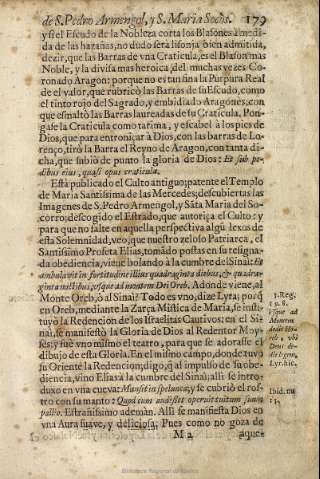 de S. Pedro Armengol, y S. Maria Socòs. 179
y si el Escudo de la Nobleza corta los Blasones à medi-
da de las hazañas, no dudo serà lisonja bien admitida,
dezir, que las Barras de vna Craticula, es el Blason mas
Noble, y la divisa mas heroica del muchas vezes Co-
ronado Aragon: porque no es tan fina la Purpura Real
de el valor, que rubricò las Barras de su Escudo, como
el tinto rojo del Sagrado, y embidiado Aragonès, con
que esmaltò las Barras laureadas de su Craticula. Pon-
gase la Craticula como tarima, y escabel à los pies de
Dios, que para entronizar à Dios, con las barras de Lo-
renço, tirò la Barra el Reyno de Aragon, con tanta di-
cha, que subiò de punto la gloria de Dios: Et sub pe-
dibus eius, quasi opus craticula.
Està publicado el Culto antiguo; patente el Templo
de Maria Santissima de las Mercedes; descubiertas las
Imagenes de S. Pedro Armengol, y Sãta Maria del So-
corro; descogido el Estrado, que autoriça el Culto: y
para que no falte en aquella perspectiva algũ lexos de
esta Solemnidad, veo, que nuestro zeloso Patriarca, el
Santissimo Profeta Elias, tomãdo postas en su resigna-
da obediencia, viene bolando à la cumbre del Sinai: Et
ambulavit in fortitudine illius quadraginta diebus, & quadra-
ginta noctibus, vsque ad montem Dei Oreb. Adonde viene, al
Monte Oreb, ò al Sinai? Todo es vno, dize Lyra; porq̃
en Oreb, mediante la Zarça Mistica de Maria, se insti-
tuyò la Redencion de los Israelitas Cautivos; en el Si-
nai, se manifestò la Gloria de Dios al Redentor Moy-
ses; y fuè vno mismo el teatro, para que se adorasse el
dibujo de esta Gloria. En el mismo campo, donde tuvo
su Oriente la Redencion; digo, q̃ al impulso de su obe-
diencia, vino Elias à la cumbre del Sinai: alli se intro-
duxo en vna cueva: Mansit in spelunca; y se cubriò el ros-
tro con su manto: Quod cum audisset operuit vultum suum
pallio. Estrañissimo ademàn. Alli se manifiesta Dios en
vna Aura suave, y deliciosa: Pues como no goza de
M 2 aque-
3. Reg.
19. 8.
Vsque ad
Montem
Lyr. hic.
Ibid. nu
13.
Biblioteca Regional de Madrid